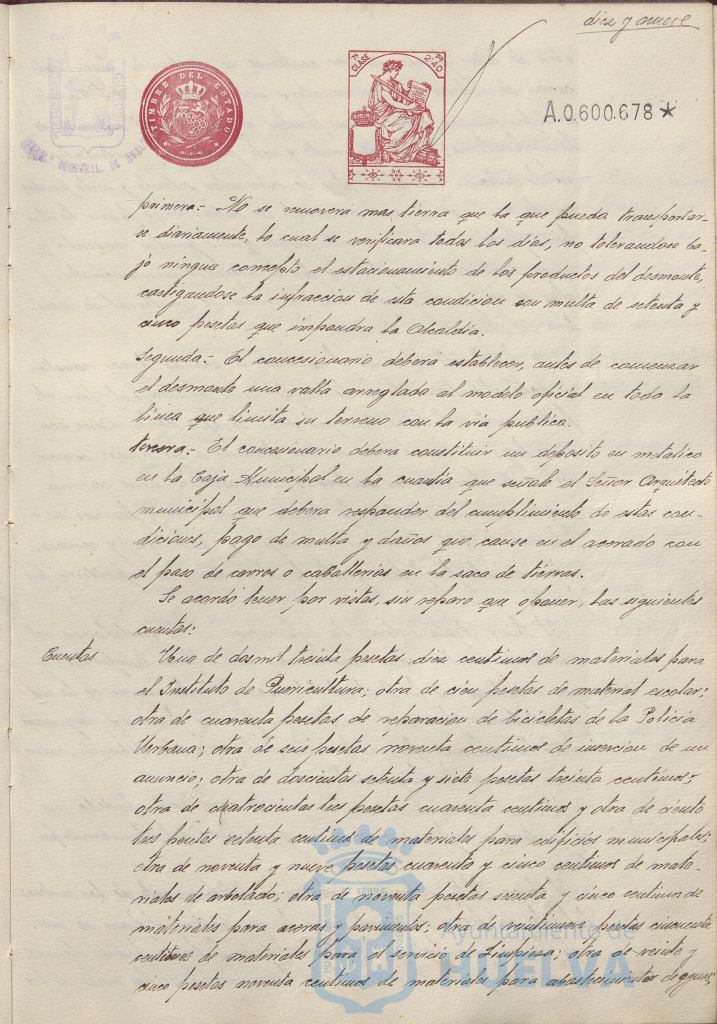 diez y nueve
TIMBRE DEL ESTADO
7ª CLASE
PS 2'40
A.0.600.678*
primera:- No se removera mas tierra que la que pueda transportar-
se diariamente, lo cual se verificara todos los dias, no tolerandose ba-
jo ningun concepto el estacionamiento de los productos del desmonte,
castigandose la infraccion de esta condicion con multa de setenta y
cinco pesetas que impondra la Alcaldia.
Segunda:- El concesionario debera establecer, antes de comenzar
el desmonte una valla arreglada al modelo oficial en toda la
linea que limita su terreno con la via publica.
tercera:- El concesionario debera constituir un deposito en metalico
en la Caja Municipal en la cuantia que señale el Señor Arquitecto
municipal que debera responder del cumplimiento de estas con-
diciones, pago de multa y daños que cause en el acerado con
el paso de carros o caballerias en la saca de tierras.
Se acordó tener por vistas, sin reparo que oponer, las siguientes
cuentas:
Cuentas
Una de dos mil treinta pesetas diez centimos de materiales para
el Instituto de Puericultura; otra de cien pesetas de material escolar;
otra de cuarenta pesetas de reparacion de bicicletas de la Policia
Urbana; otra de seis pesetas noventa centimos de insercion de un
anuncio; otra de doscientas setenta y siete pesetas treinta centimos;
otra de cuatrocientas tres pesetas cuarenta centimos y otra de ciento
tres pesetas setenta centimos de materiales para edificios municipales;
otra de noventa y nueve pesetas cuarenta y cinco centimos de mate-
riales de arbolado; otra de noventa pesetas sesenta y cinco centimos de
materiales para aceras y pavimentos; otra de pesetas cincuenta
centimos de materiales para el servicio de Limpieza; otra de veinte y
cinco pesetas noventa centimos de materiales para abastecimientos de aguas;
Ayuntamiento de
HUELVA